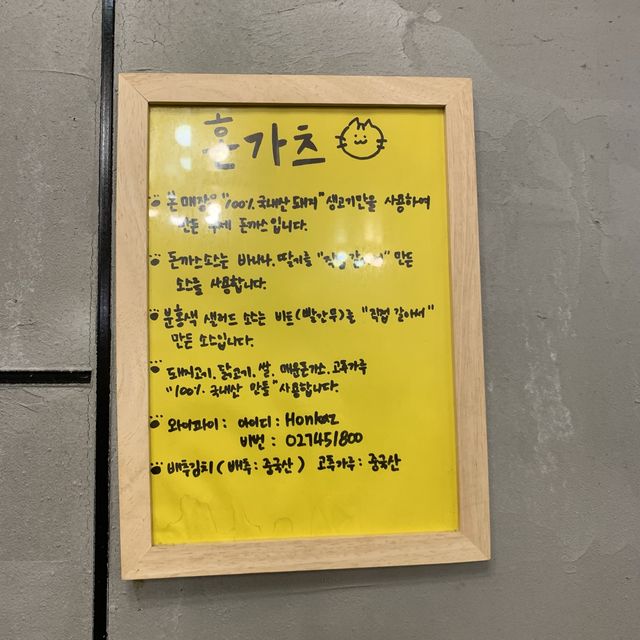 혼가츠
본 매장은 "100% 국내산 돼지" 생고기만을 사용하여
만든 수제 돈까스입니다.
돈까스소스는 바나나, 딸기를 "직접 갈아서" 만든
소스를 사용합니다.
분홍색 샐러드 소스는 비트(빨간무)를 "직접 갈아서"
만든 소스입니다.
돼지고기, 닭고기, 쌀, 매운돈까스, 고춧가루
"100% 국내산 만을" 사용합니다.
와이파이 : 아이디 : Honkaz
비번 : 027451800
배추김치 ( 배추 : 중국산 ) 고춧가루 : 중국산